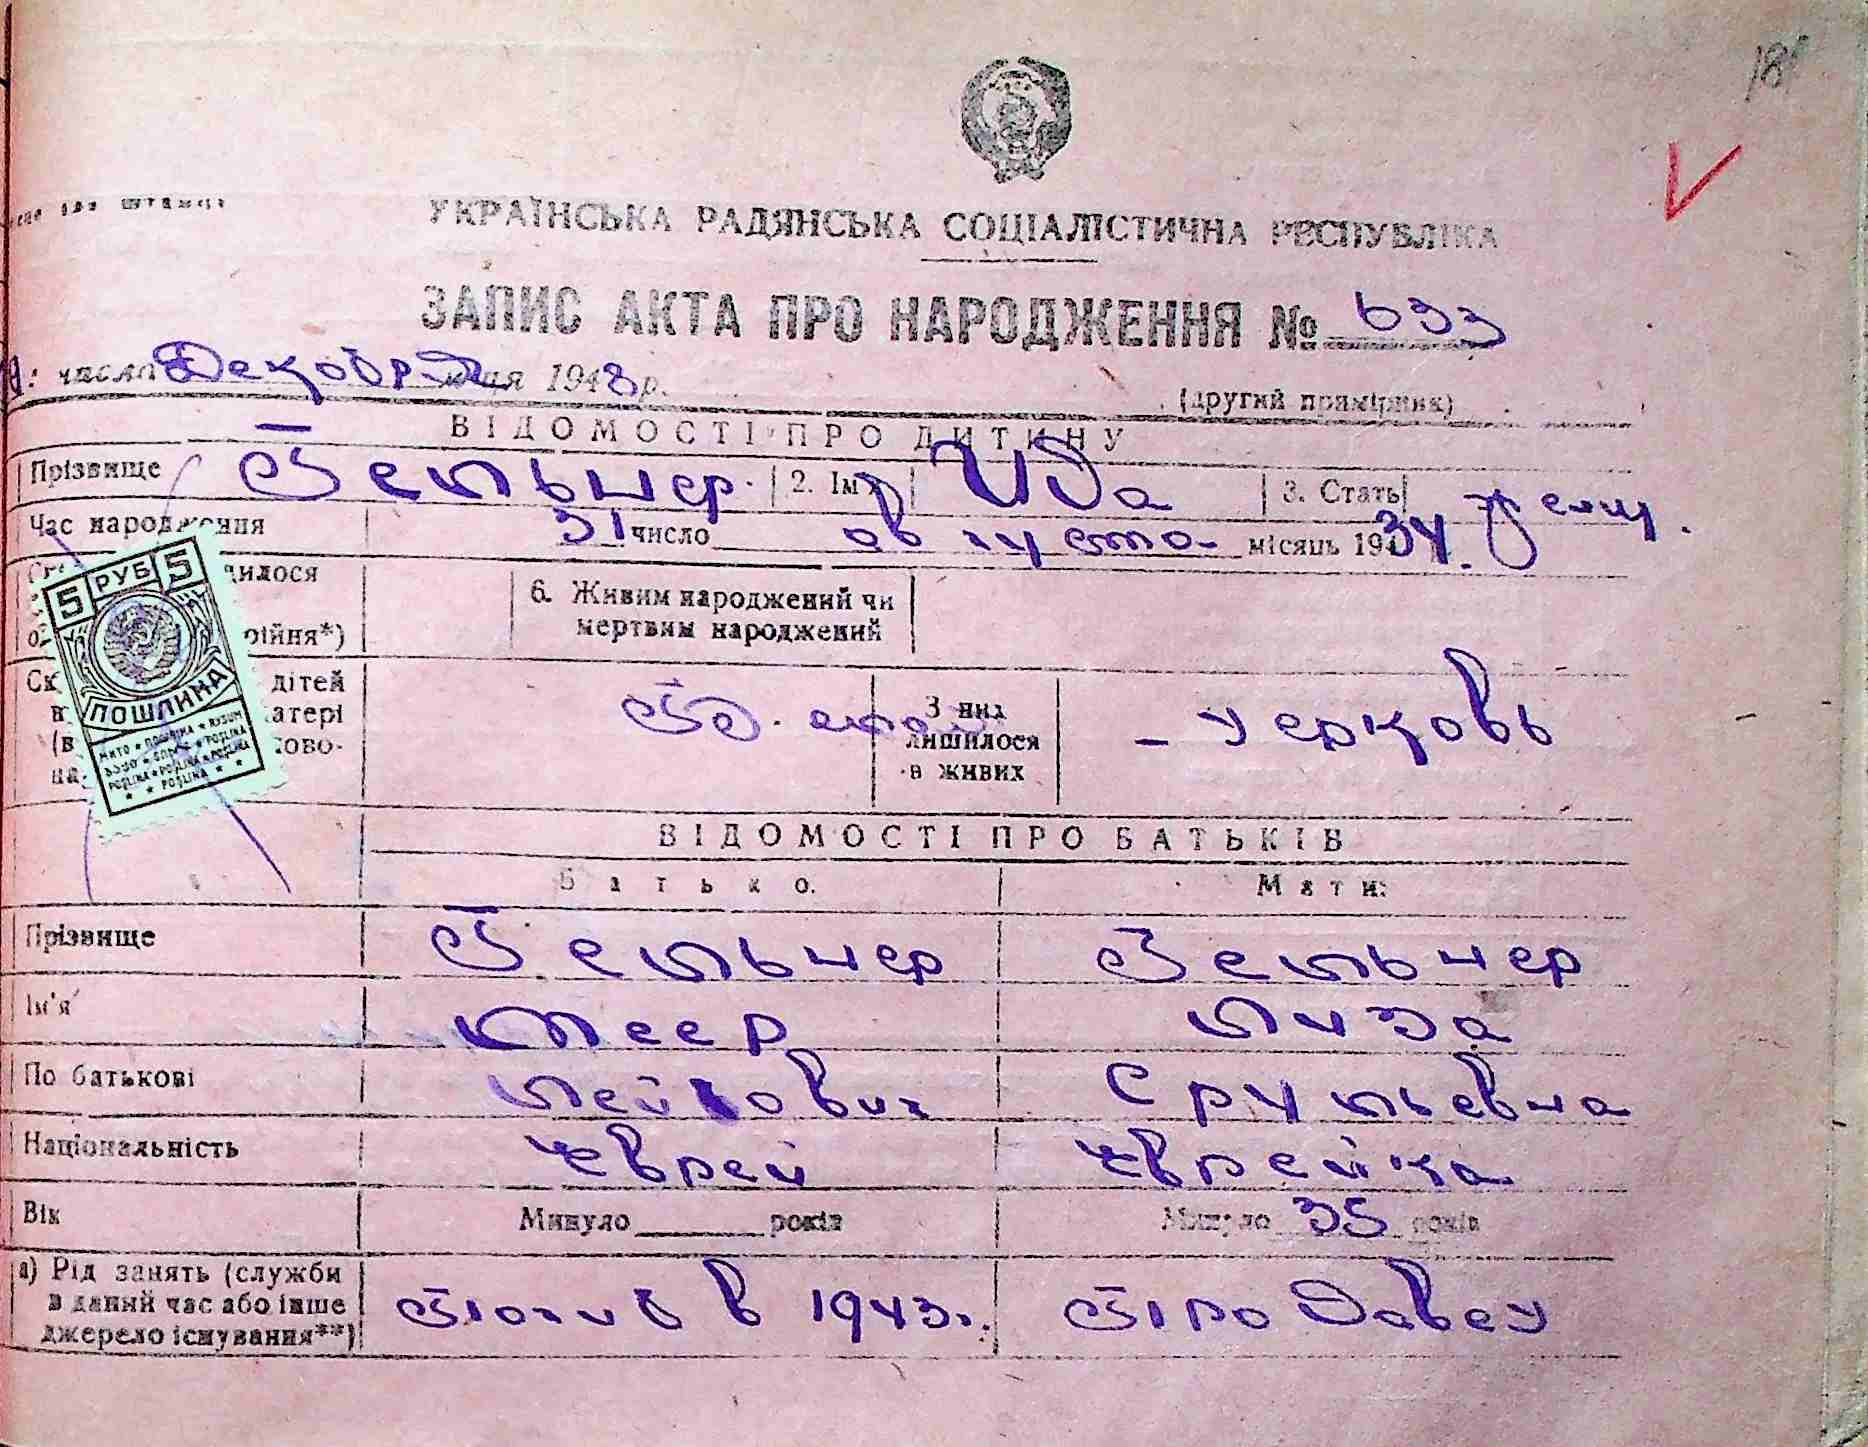 181
УКРАЇНСЬКА РАДЯНСЬКА СОЦІАЛІСТИЧНА РЕСПУБЛІКА
ЗАПИС АКТА ПРО НАРОДЖЕННЯ № 633
числа Декабря місяця 1948 р.
(другий примірник)
ВІДОМОСТІ ПРО ДИТИНУ
Прізвище Гельнер. 2. Ім'я Ида 3. Стать женщ.
Час народження 31 число августа місяць 1934.
дилося 6. Живим народжений чи
мертвим народжений
ійня*)
дітей З них
атері лишилося
в живих
5 РУБ 5
ПОШЛИНА
МИТО * ПОШЛІНА * RÜSUM
POȘLINA
ВІДОМОСТІ ПРО БАТЬКІВ
Батько. Мати:
Прізвище Гельнер Гельнер
Ім'я Меер Лиза
По батькові Лейбович Срульевна
Національність Еврей Еврейка
Вік Минуло ______ років Минуло 35 років
а) Рід занять (служби
в даний час або інше
джерело існування**)
Погиб в 1943г. Продавец